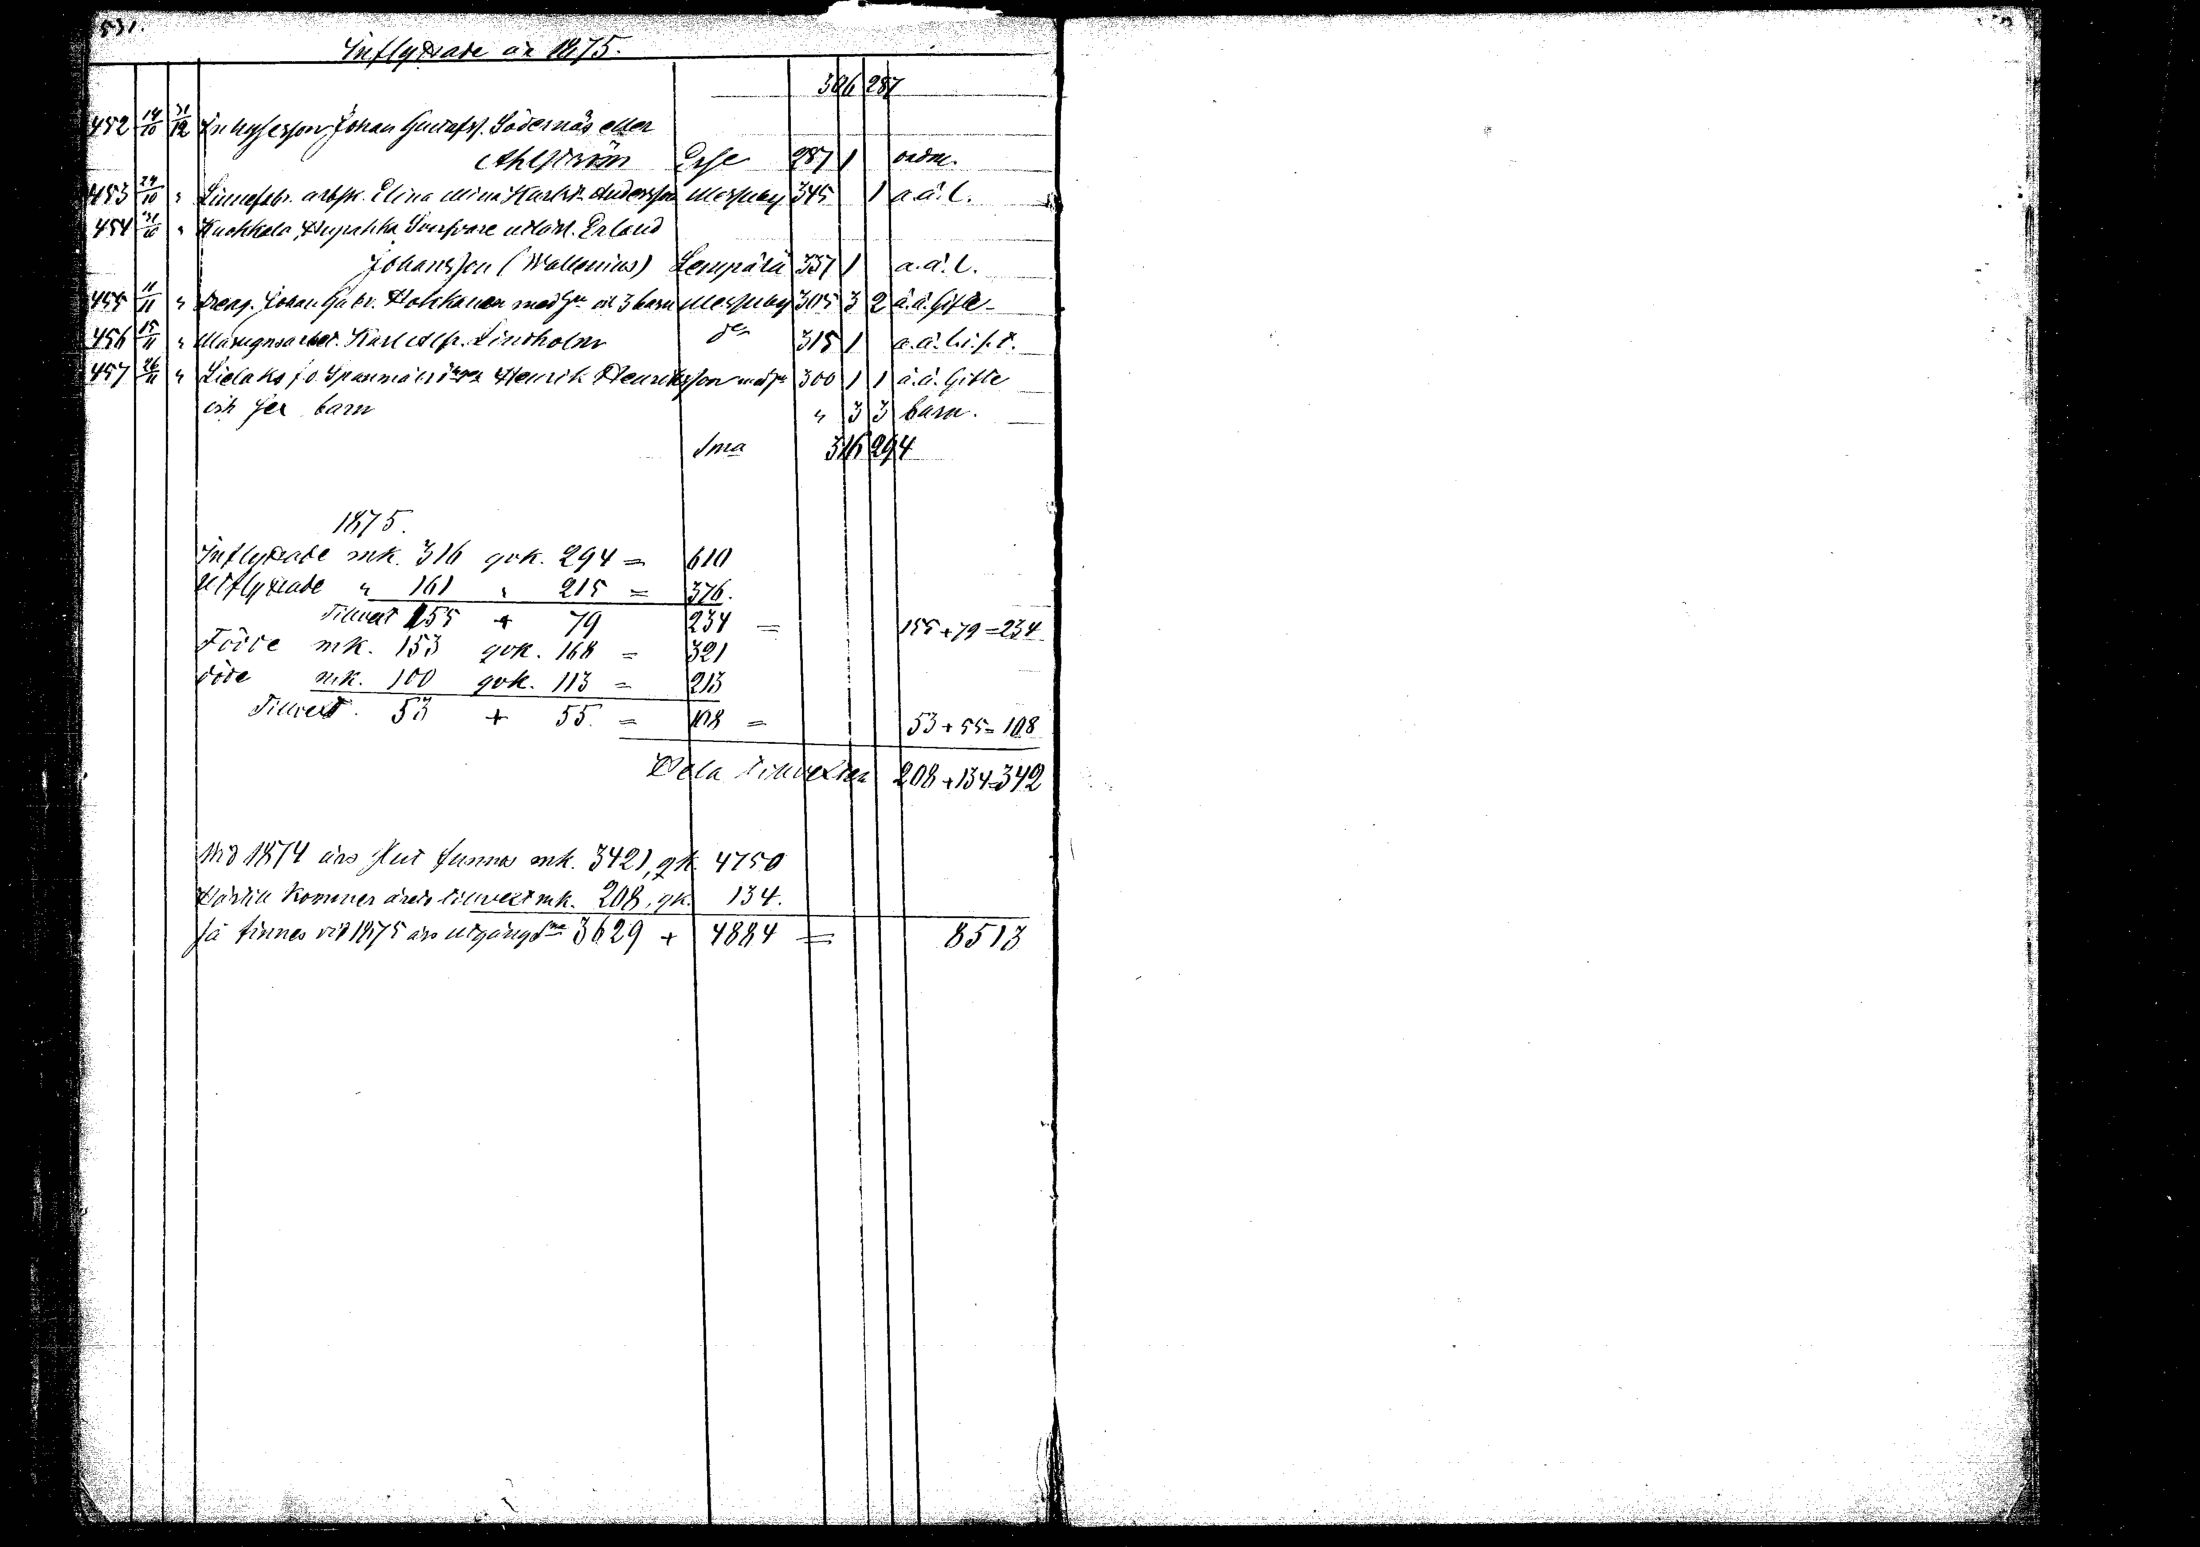 531.
Inflyttade år 1875.
306 287
452 14/10 31/12 Johan Gustafss. Södernäs eller
Ahlström Esse 287 1 ordm.
453 24/10 " Elina Mina Karlsd. Andersson 345 1 a.ä.l.
454 31/10 " Erland
Johansson (Wallenius) Lempälä 337 1 a.ä.l.
455 11/11 " Dreng. Johan Gabr. Hokkanen med hu och 3 barn 305 3 2 ä.ä. Gifte
456 15/11 " Karl Alfr. Lindholm do 315 1 a.ä.
457 26/11 " Henrik Henriksson med hu 300 1 1 ä.ä. Gifte
och sex barn " 3 3 barn.
Sma 316 294
1875.
Inflyttade mk. 316 qvk. 294 = 610
Utflyttade " 161 " 215 = 376.
Tillvext 155 + 79 234 = 155+79=234
Födde mk. 153 qvk. 168 = 321
döde mk. 100 qvk. 113 = 213
Tillvext. 53 + 55. = 108 = 53+55=108
Hela tillvexten 208+134=342
Vid 1874 års slut funnos mk. 3421, qk. 4750
Härtill kommer årets tillvext mk. 208, qk. 134.
Så finnes vid 1875 års utgång Sma 3629 + 4884 = 8513